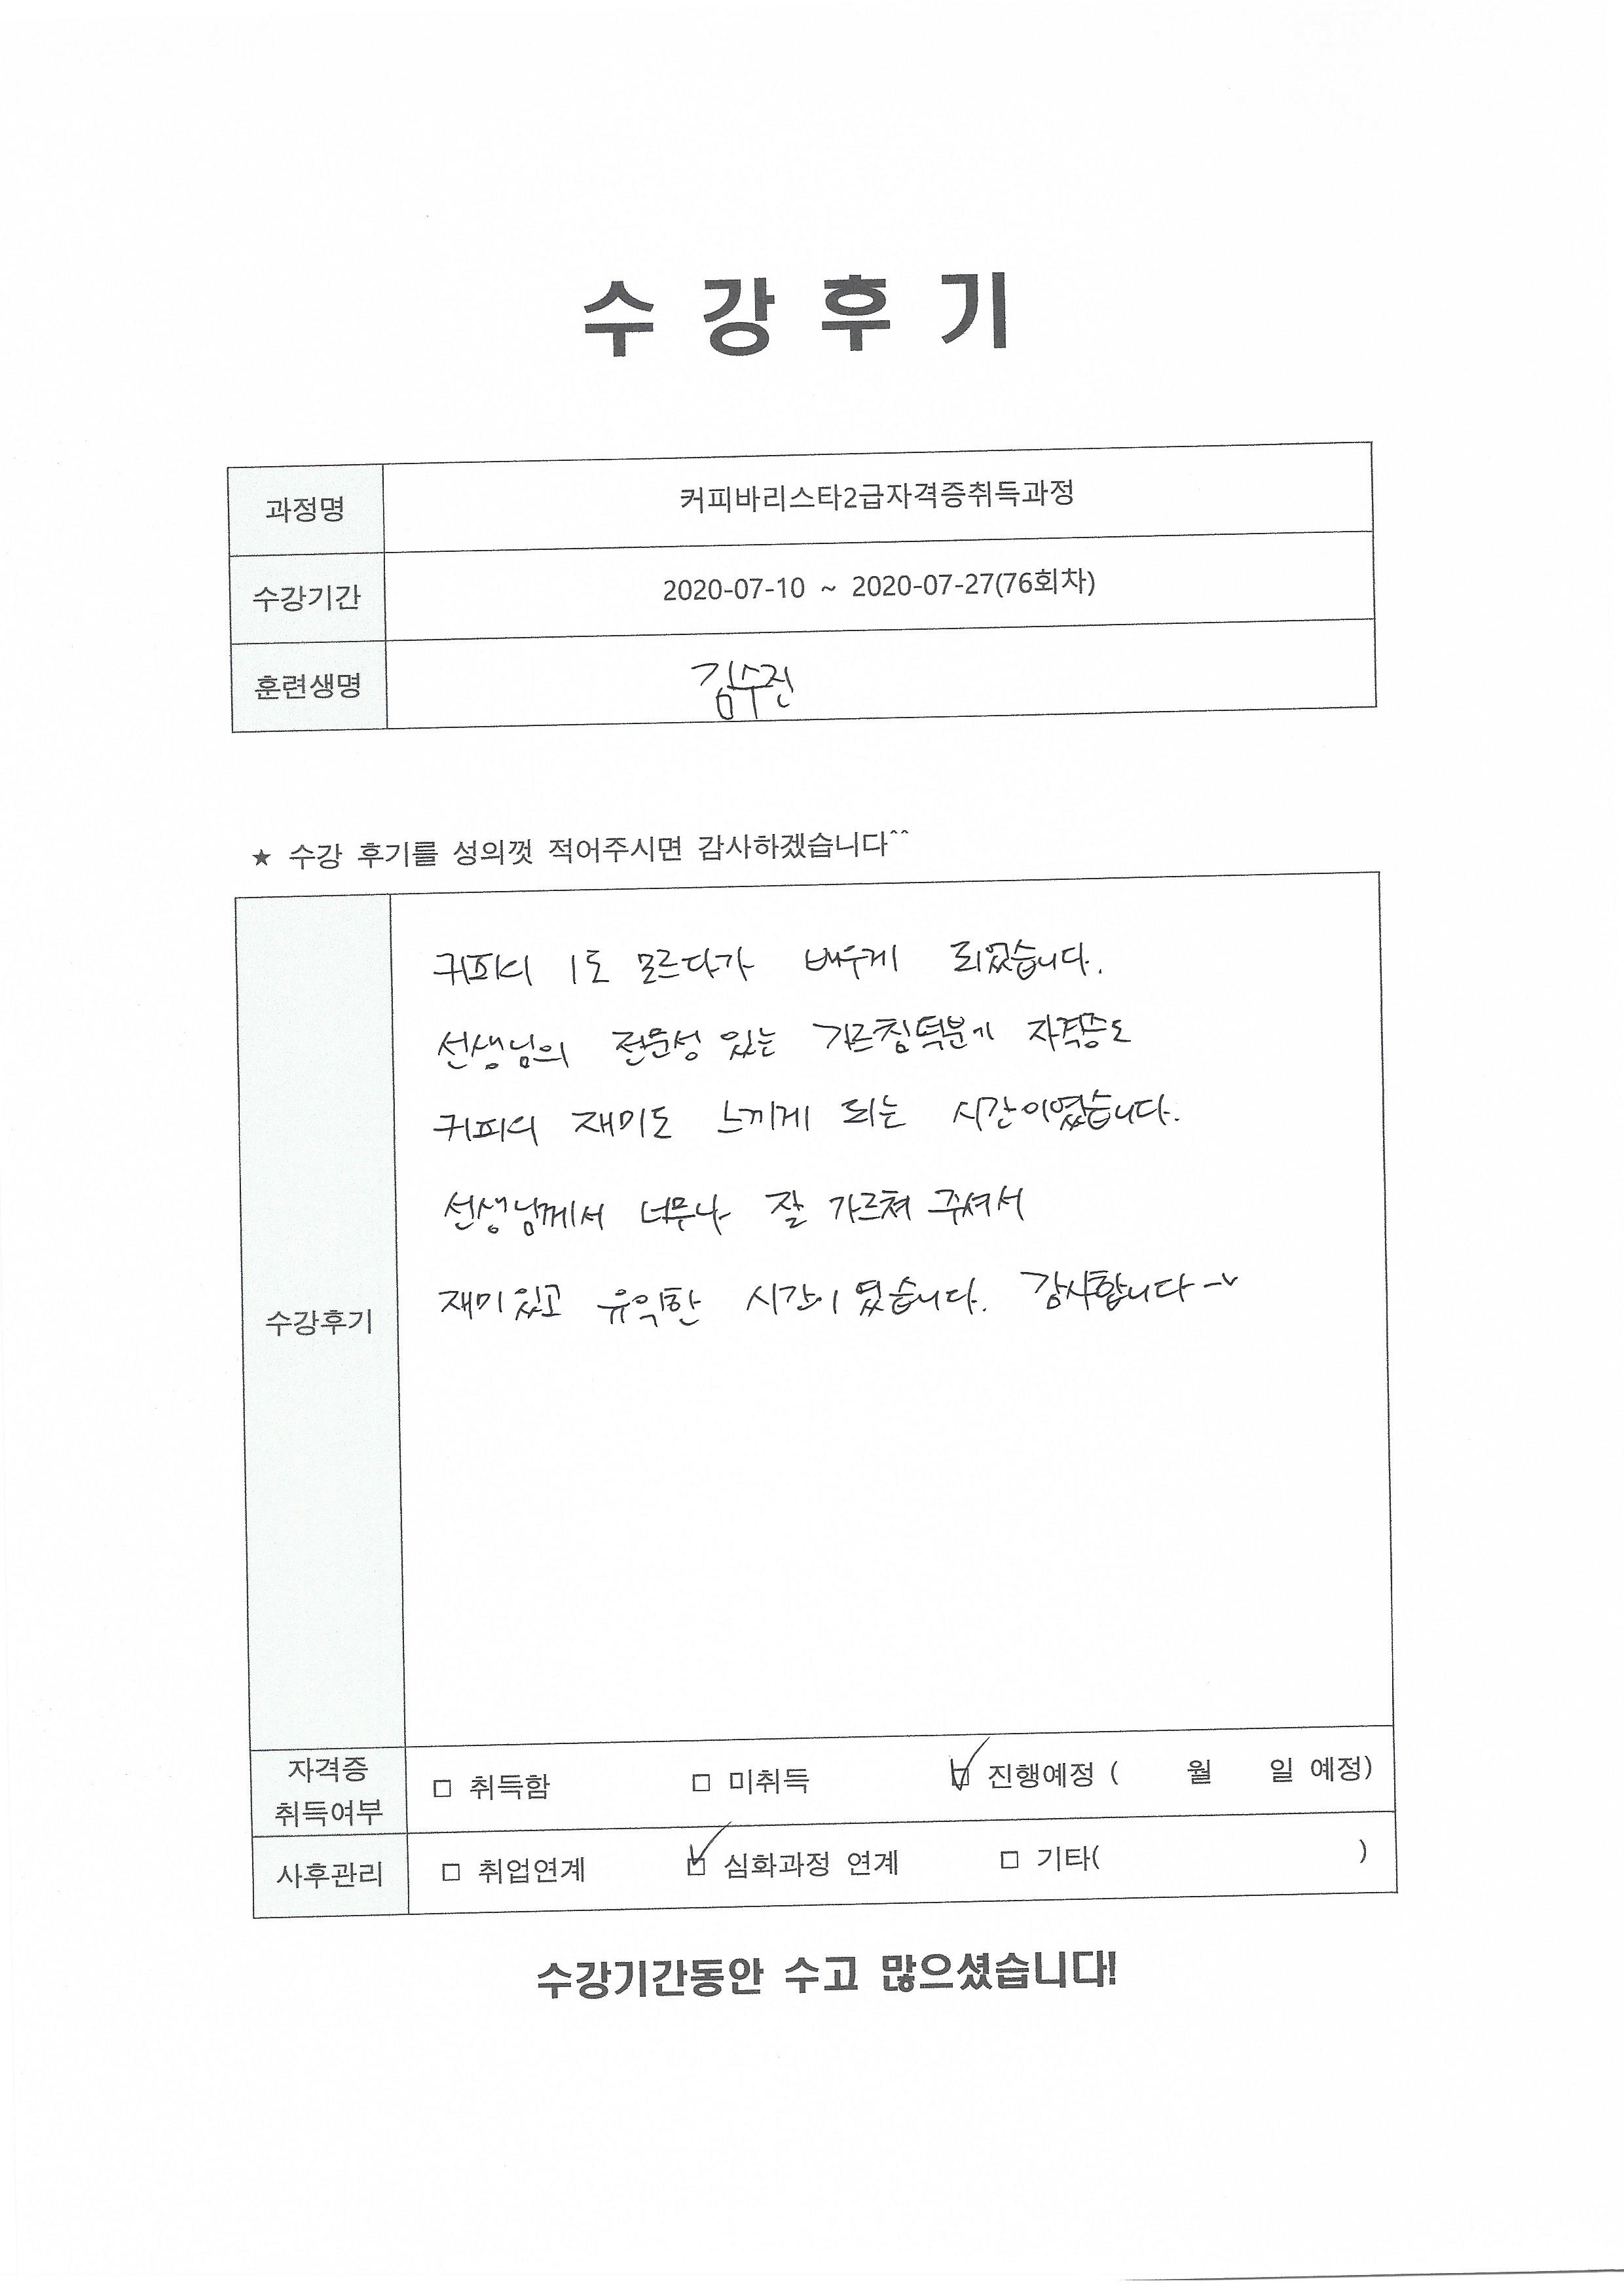 수강후기
과정명 커피바리스타2급자격증취득과정
수강기간 2020-07-10 ~ 2020-07-27(76회차)
훈련생명 김수진
★ 수강 후기를 성의껏 적어주시면 감사하겠습니다^^
커피의 1도 모르다가 배우게 되었습니다.
선생님의 전문성 있는 가르침덕분에 자격증도
커피의 재미도 느끼게 되는 시간이였습니다.
선생님께서 너무나 잘 가르쳐 주셔서
재미있고 유익한 시간이였습니다. 감사합니다~
수강후기
자격증
취득여부
□ 취득함 □ 미취득 ☑ 진행예정 ( 월 일 예정)
사후관리 □ 취업연계 ☑ 심화과정 연계 □ 기타( )
수강기간동안 수고 많으셨습니다!